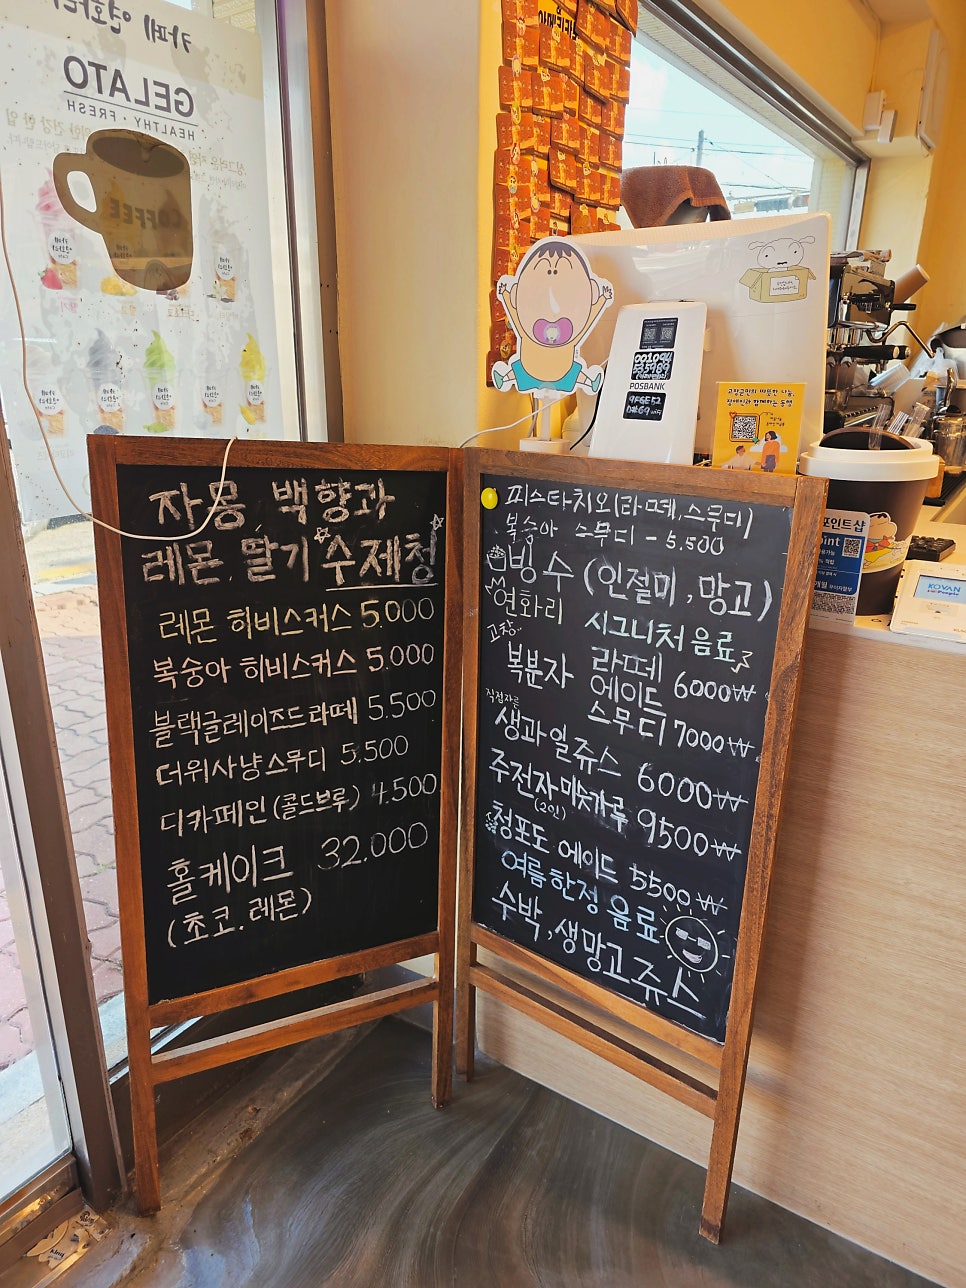 카페 연화리
GELATO
HEALTHY · FRESH
COFFEE
자몽, 백향과
레몬, 딸기 수제청
레몬 히비스커스 5.000
복숭아 히비스커스 5.000
블랙글레이즈드라떼 5.500
더위사냥스무디 5.500
디카페인(콜드브루) 4.500
홀케이크 32.000
(초코.레몬)
피스타치오(라떼,스무디)
복숭아 스무디 - 5.500
빙수(인절미,망고)
연화리 시그니처 음료
고창..
복분자 라떼
에이드 6000₩
스무디 7000₩
직접자른
생과일쥬스 6000₩
주전자미숫가루 9500₩
(2인)
청포도 에이드 5500₩
여름한정 음료
수박,생망고쥬스
POSBANK
포인트샵
KOVAN